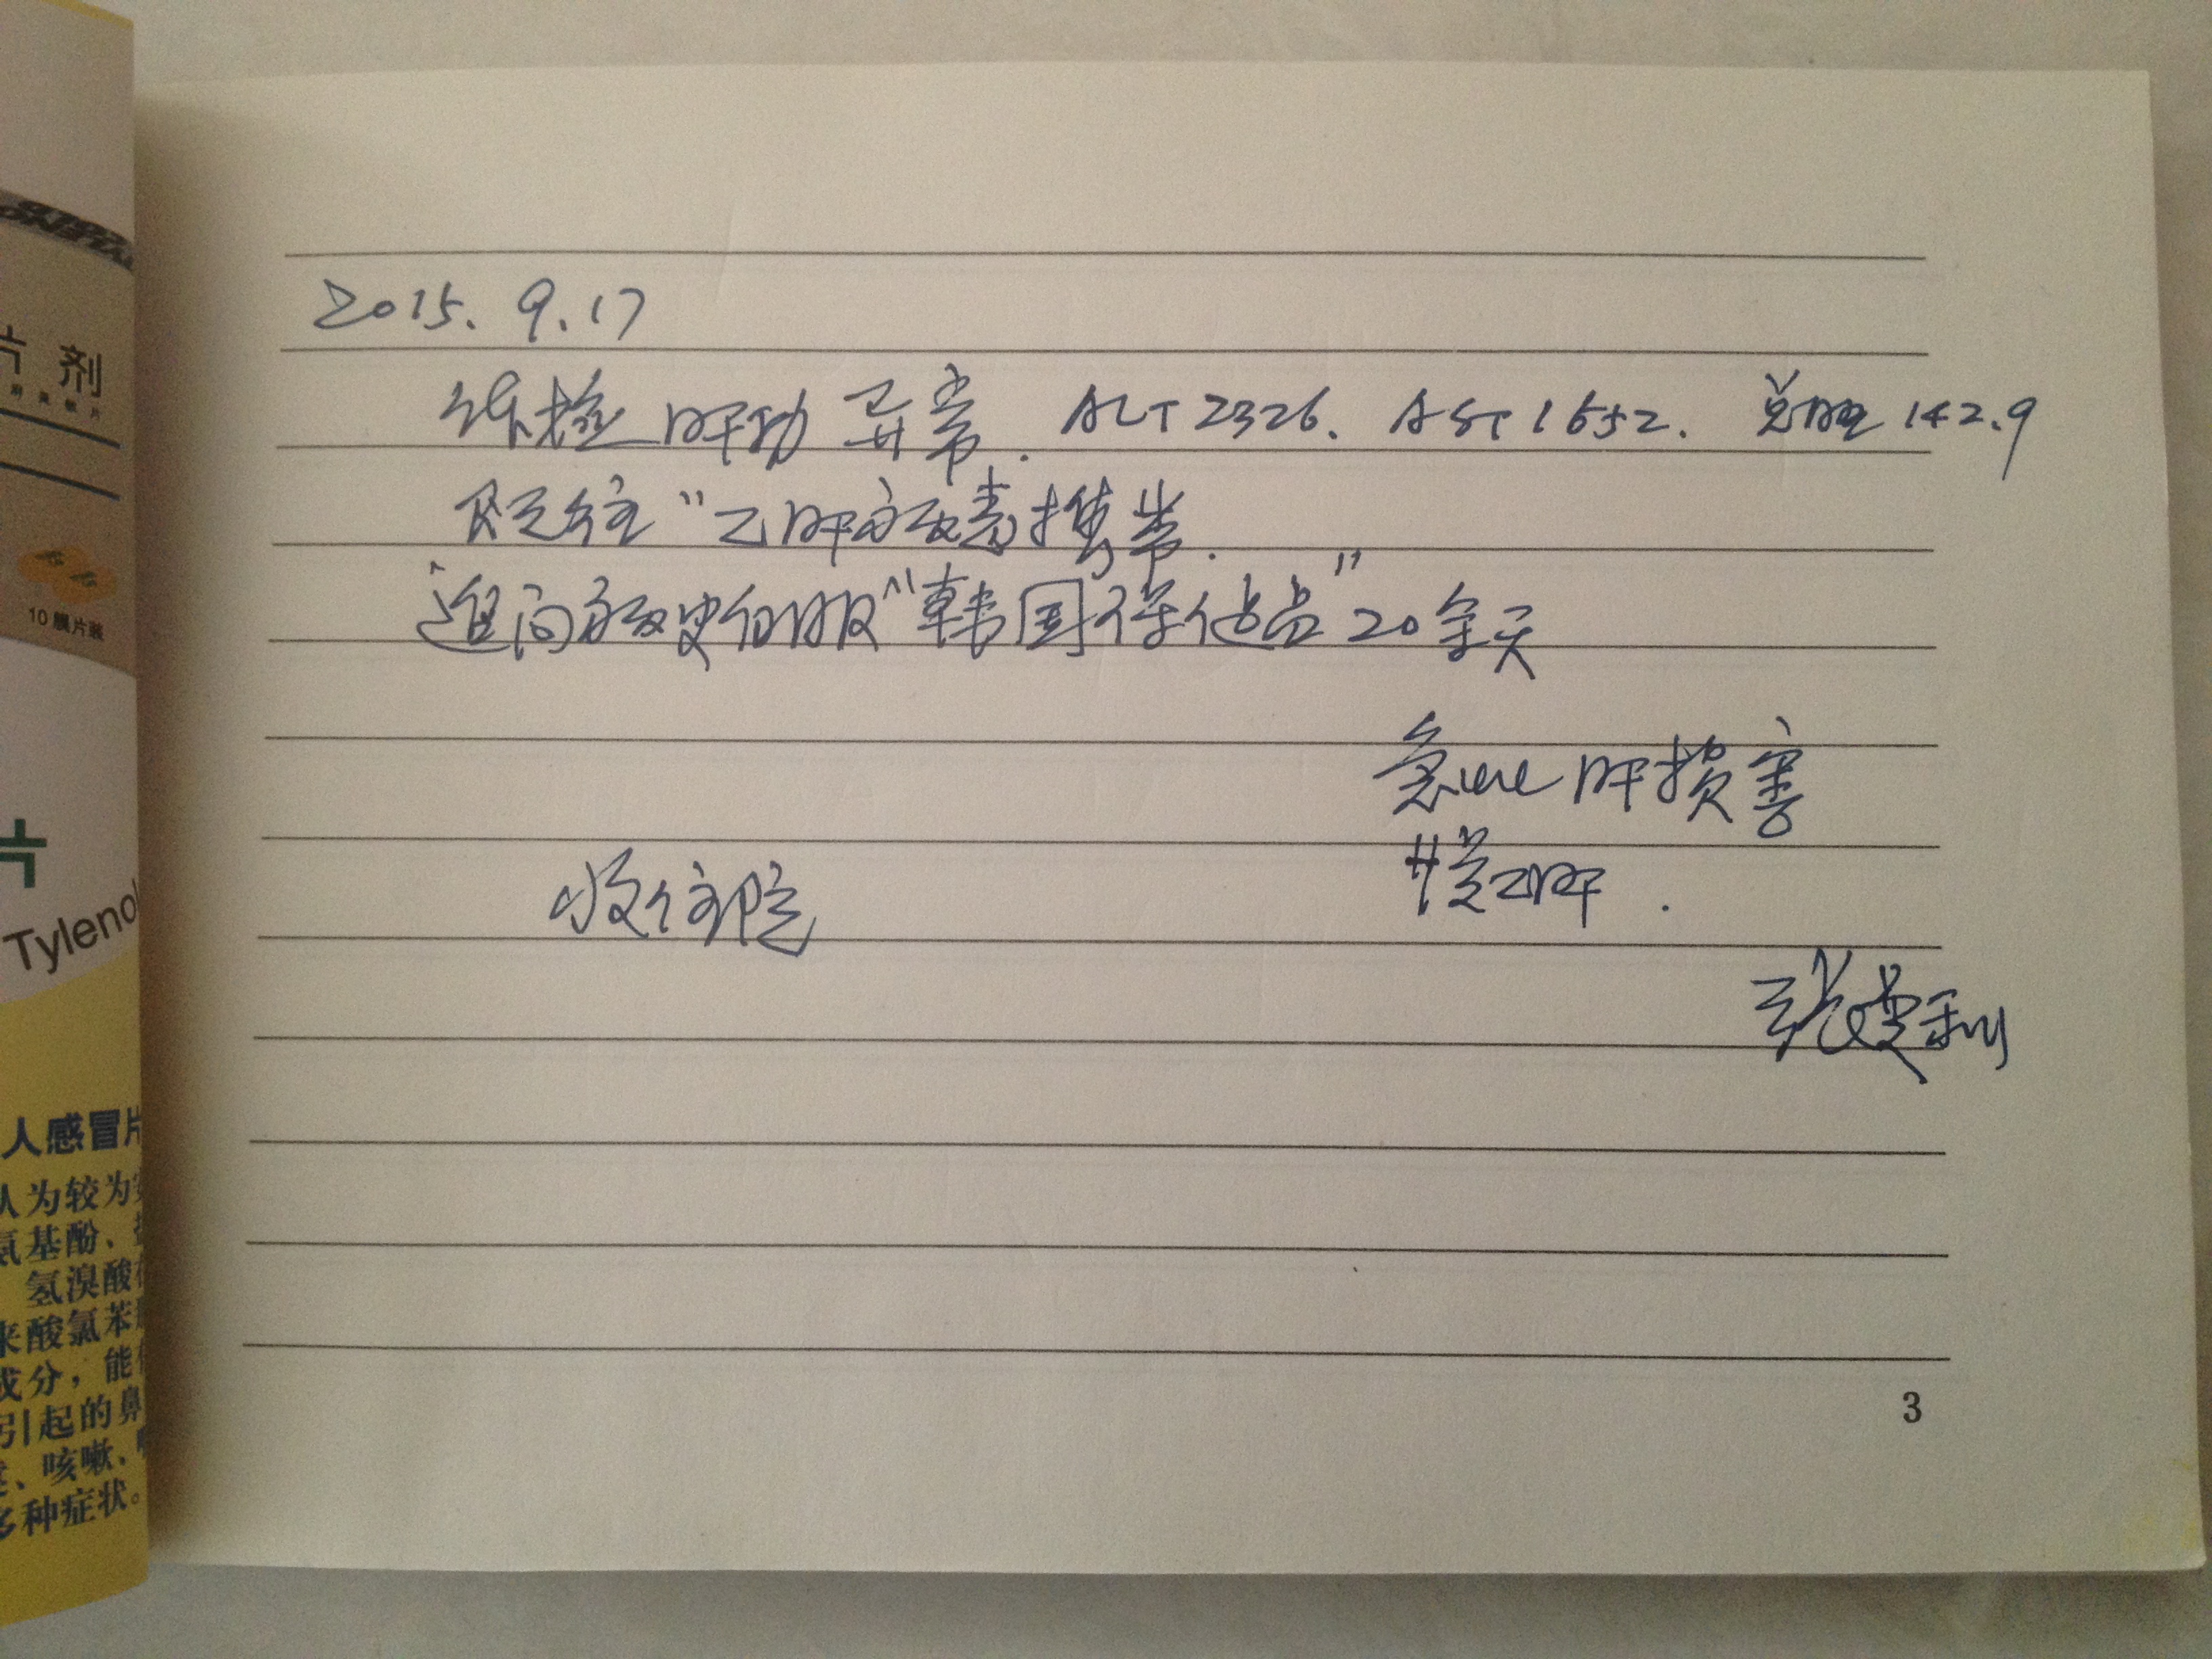 2015. 9. 17
体检肝功异常. ALT 2326. AST 1652. 总胆 142.9
既往"乙肝病毒携带.
追问病史自服"韩国保健品"20余天
急性肝损害
慢乙肝.
收住院
3
片剂
10膜片装
Tyleno
人感冒片
人为较为
氨基酚、
氢溴酸
来酸氯苯
成分，能
引起的鼻
、咳嗽、
多种症状。